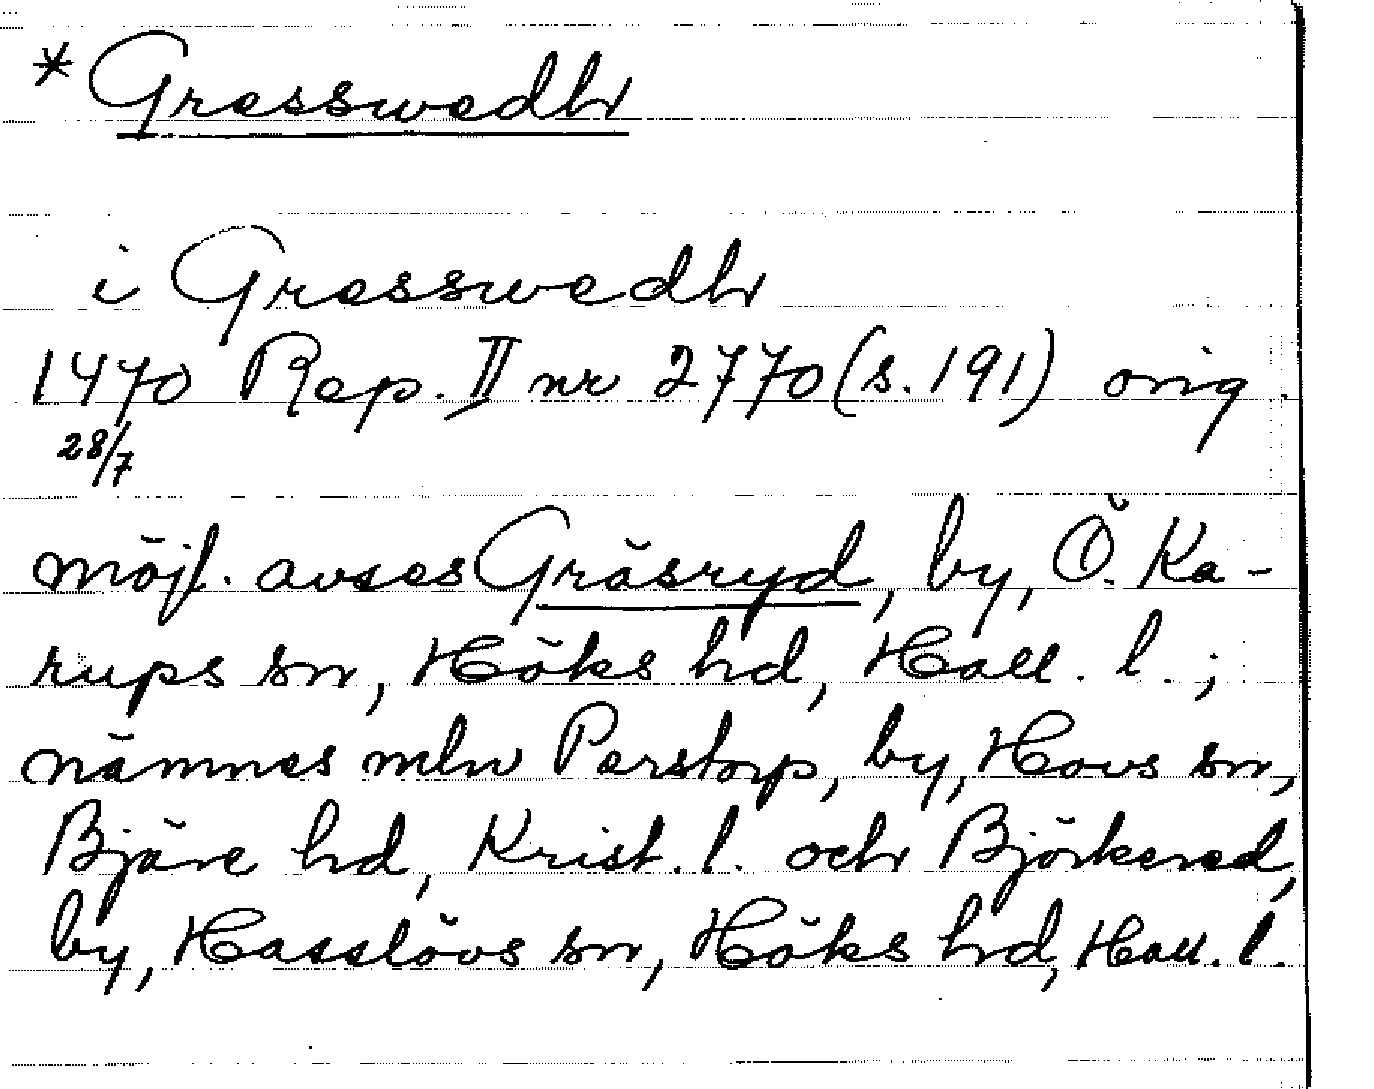 * Gresswedh
i Gresswedh
1470 Rep. II nr 2770 (s. 191) orig.
28/7
möjl. avses Gräsryd, by, Ö. Ka-
rups sn, Höks hd, Hall. l.;
nämnes mln Perstorp, by, Hovs sn,
Bjäre hd, Krist. l. och Björkered,
by, Hasslövs sn, Höks hd, Hall. l.